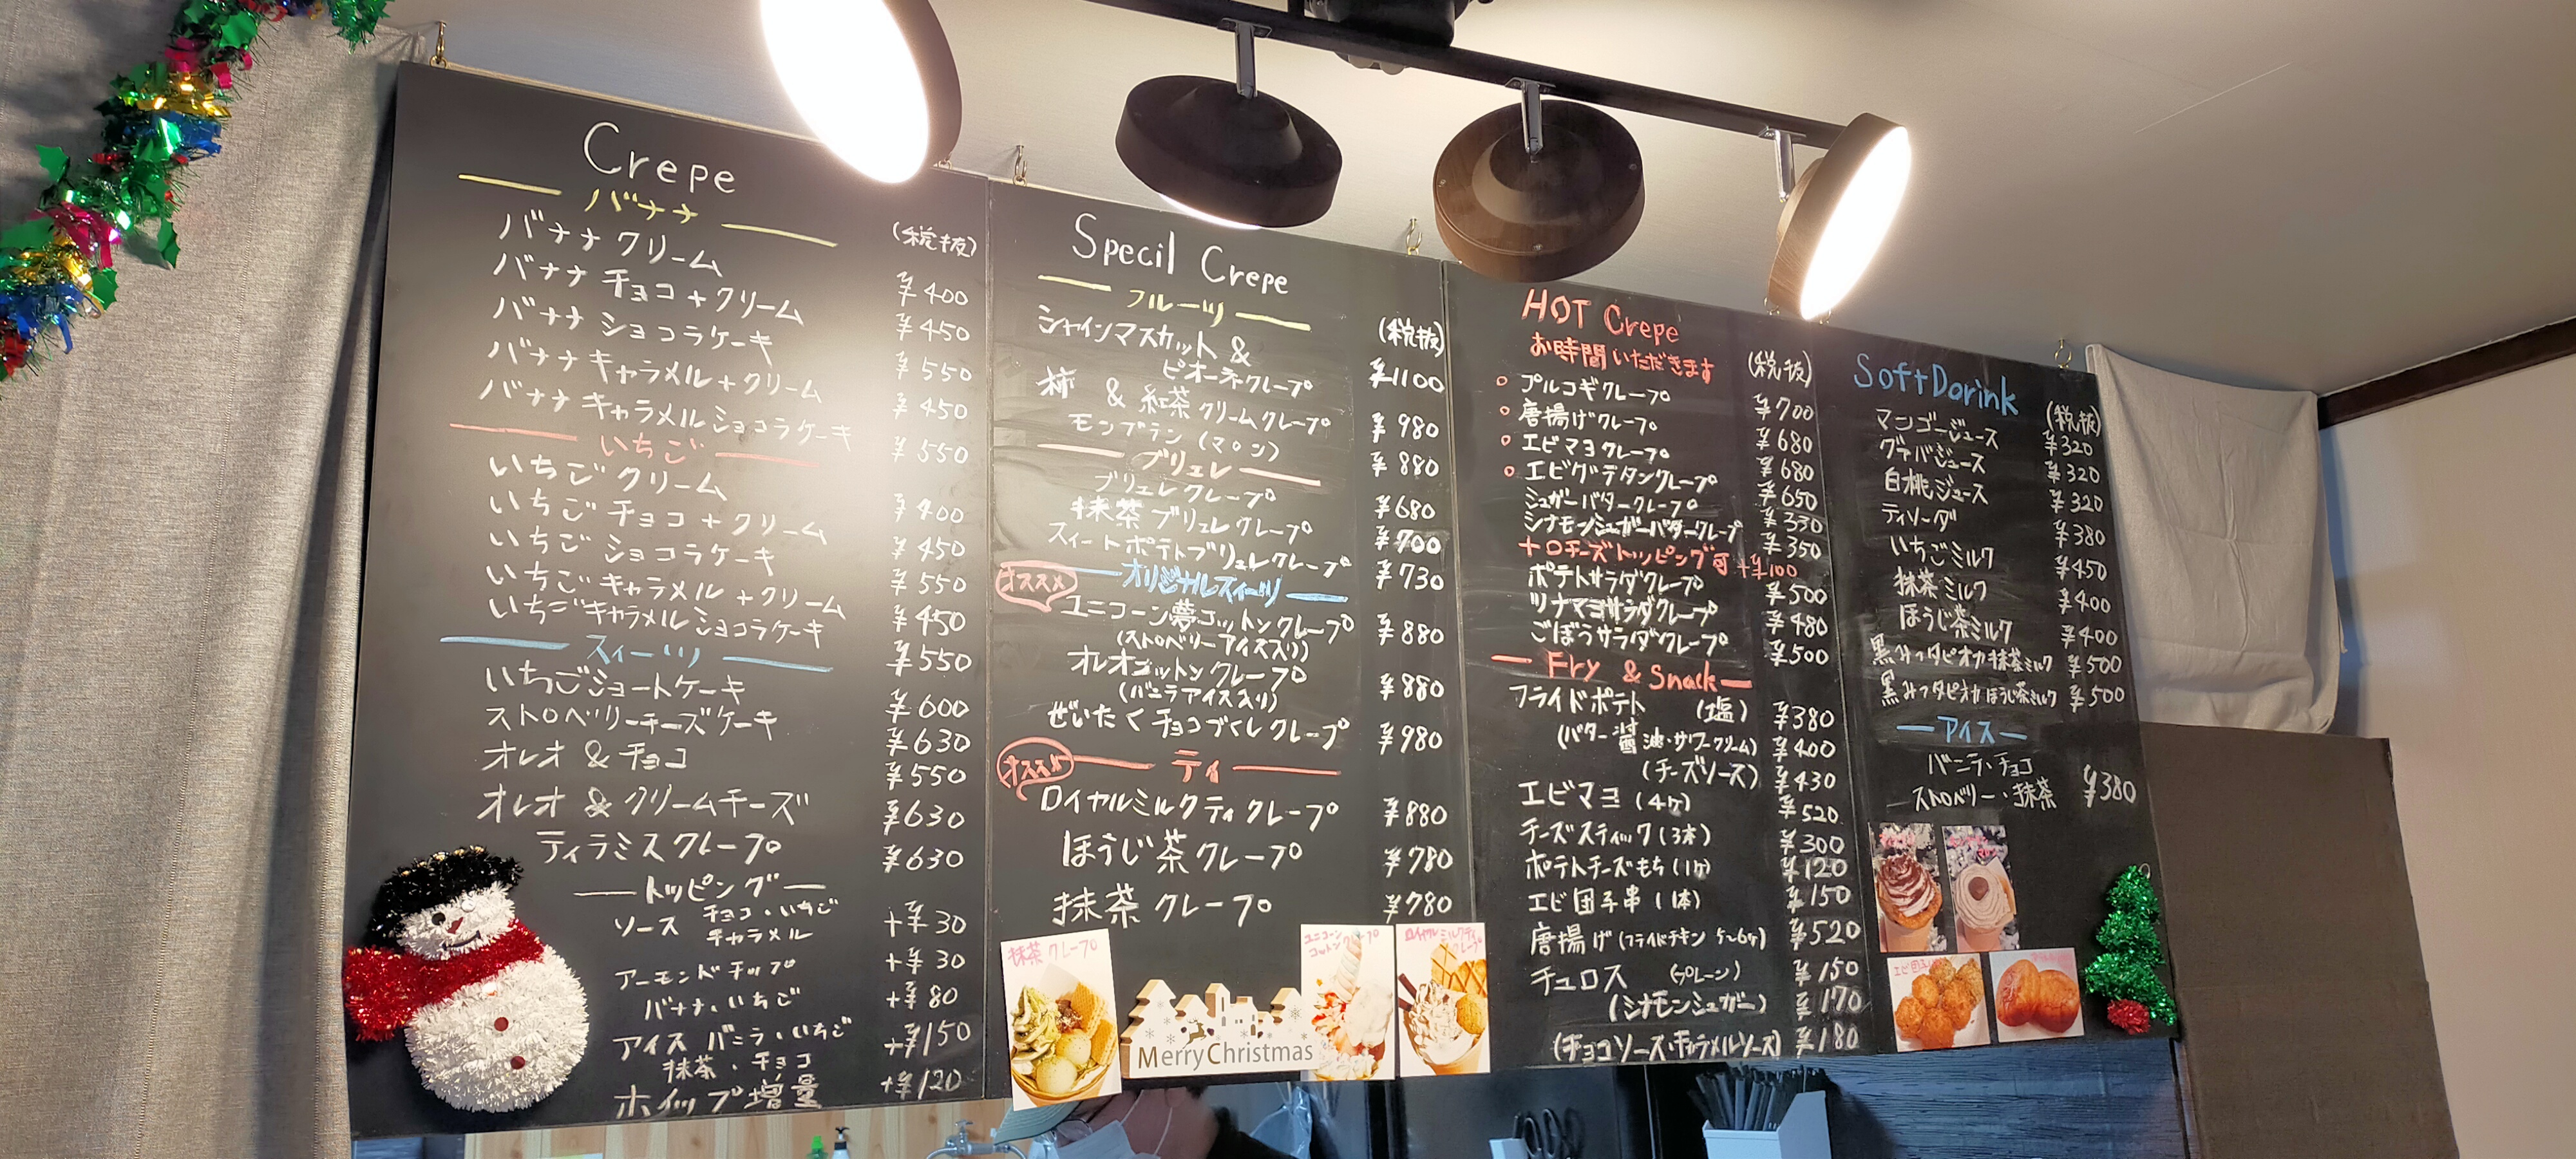 Crepe
バナナ
(税抜)
バナナクリーム ¥400
バナナチョコ+クリーム ¥450
バナナショコラケーキ ¥550
バナナキャラメル+クリーム ¥450
バナナキャラメルショコラケーキ ¥550
いちご
いちごクリーム ¥400
いちごチョコ+クリーム ¥450
いちごショコラケーキ ¥550
いちごキャラメル+クリーム ¥450
いちごキャラメルショコラケーキ ¥550
スィーツ
いちごショートケーキ ¥600
ストロベリーチーズケーキ ¥630
オレオ&チョコ ¥550
オレオ&クリームチーズ ¥630
ティラミスクレープ ¥630
トッピング
ソース チョコ・いちご +¥30
キャラメル
アーモンドチップ +¥30
バナナ、いちご +¥80
アイス バニラ・いちご +¥150
抹茶・チョコ
ホイップ増量 +¥120
Specil Crepe
フルーツ
(税抜)
シャインマスカット&
ピオーネクレープ ¥1100
柿 & 紅茶クリームクレープ ¥980
モンブラン(マロン) ¥880
ブリュレ
ブリュレクレープ ¥680
抹茶ブリュレクレープ ¥700
スィートポテトブリュレクレープ ¥730
オススメ オリジナルスィーツ
ユニコーン夢コットンクレープ ¥880
(ストロベリーアイス入り)
オレオコットンクレープ ¥880
(バニラアイス入り)
ぜいたくチョコづくしクレープ ¥980
オススメ ティ
ロイヤルミルクティクレープ ¥880
ほうじ茶クレープ ¥780
抹茶クレープ ¥780
抹茶クレープ
MerryChristmas
ユニコーン
コットンクレープ
ロイヤルミルクティ
クレープ
HOT Crepe
お時間いただきます
(税抜)
○プルコギクレープ ¥700
○唐揚げクレープ ¥680
○エビマヨクレープ ¥680
○エビグラタンクレープ ¥650
シュガーバタークレープ ¥330
シナモンシュガーバタークレープ ¥350
+○チーズトッピング可 +¥100
ポテトサラダクレープ ¥500
ツナマヨサラダクレープ ¥480
ごぼうサラダクレープ ¥500
Fry & Snack
フライドポテト (塩) ¥380
(バター醤油・サワークリーム) ¥400
(チーズソース) ¥430
エビマヨ(4ヶ) ¥520
チーズスティック(3本) ¥300
ポテトチーズもち(1ヶ) ¥120
エビ団子串(1本) ¥150
唐揚げ(フライドチキン 5~6ヶ) ¥520
チュロス (プレーン) ¥150
(シナモンシュガー) ¥170
(チョコソース・キャラメルソース) ¥180
SoftDorink
(税抜)
マンゴージュース ¥320
グァバジュース ¥320
白桃ジュース ¥320
ティソーダ ¥380
いちごミルク ¥450
抹茶ミルク ¥400
ほうじ茶ミルク ¥400
黒みつタピオカ抹茶ミルク ¥500
黒みつタピオカほうじ茶ミルク ¥500
アイス
バニラ・チョコ
ストロベリー・抹茶 ¥380
エビ団子